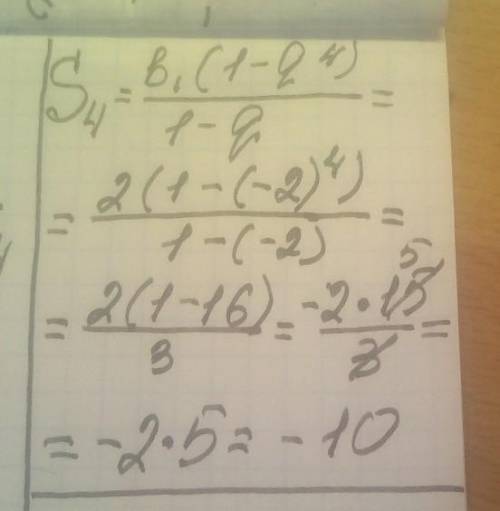 S₄ = в₁(1-q⁴) / 1-q =
= 2(1-(-2)⁴) / 1-(-2) =
= 2(1-16) / 3 = -2·15 / 3 = 5
= -2·5 = -10